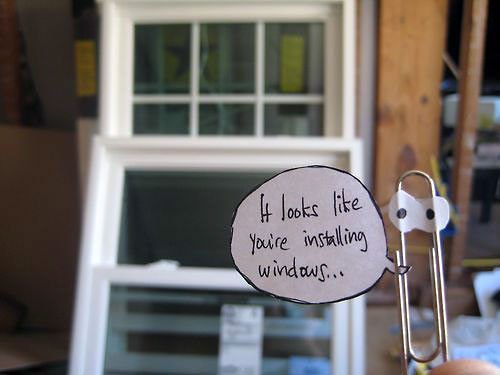 It looks like
you're installing
windows...